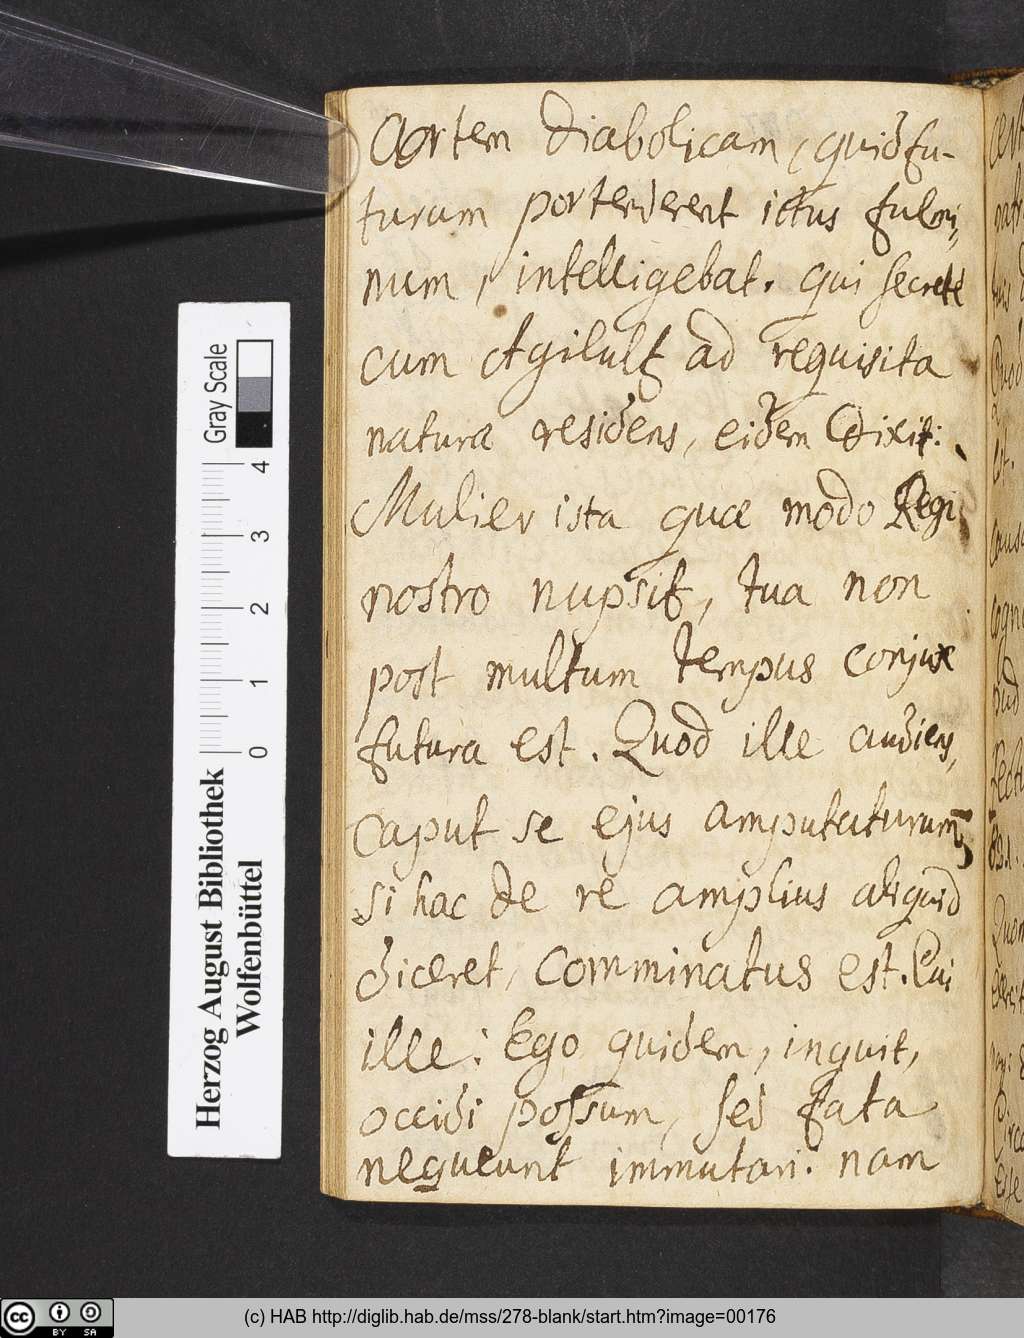 Aortem diabolicam, quid fu-
turum portenderent ictus fulmi=
num, intelligebat. Qui secrete
cum Agilulf ad requisita
natura residens, eidem dixit:
Mulier ista quæ modo Regi
nostro nupsit, tua non
post multum tempus conjux
futura est. Quod ille audiens,
caput se ejus amputaturum,
si hac de re amplius aliquid
diceret, comminatus est. Cui
ille: Ego quidem, inquit,
occidi possum, sed fata
nequeunt immutari. nam
Gray Scale
4
3
2
1
0
Herzog August Bibliothek
Wolfenbüttel
cc BY SA
(c) HAB http://diglib.hab.de/mss/278-blank/start.htm?image=00176